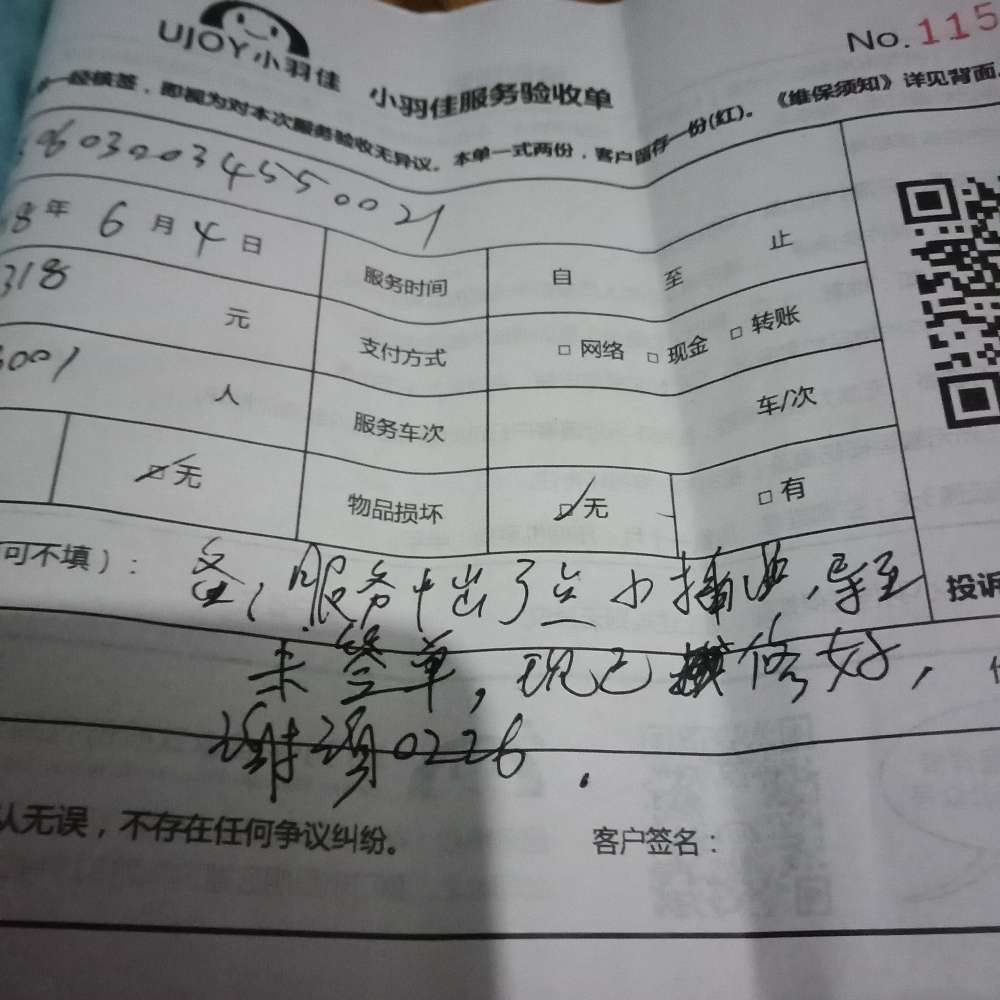 UJOY小羽佳
小羽佳服务验收单
No.115
一经核签，即视为对本次服务验收无异议。本单一式两份，客户留存一份(红)。《维保须知》详见背面
06030034550021
8年6月4日
服务时间 自 至 止
318 元
支付方式 □网络 □现金 □转账
001 人
服务车次 车/次
☑无
物品损坏 ☑无 □有
可不填)：
服务中出了点小插曲，导至
未签单，现已修好，
谢谢0226.
投诉
认无误，不存在任何争议纠纷。
客户签名：